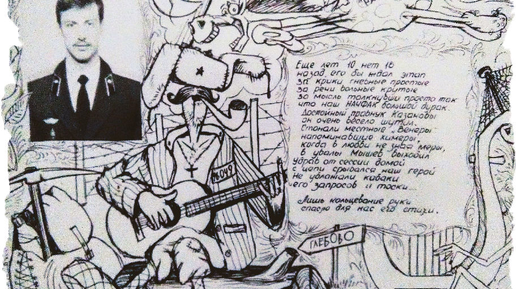 Еще лет 10 нет 16
назад его бы ждал этап
за крики гневные простые
за речи вольные крутые
за мысль толкнувши просто так
что наш
большой дурак
Достойный правнук Казановы
он очень весело шутил
Стонали местные "Венеры
напоминавшие химеры
когда в любви не зная меры,
в увалы Мышев выходил
Удрав от сессии домой
с цепи срывался наш герой
Не удлажали кабаки
его запросов и тоски...
Лишь кольцевание руки
спасло для нас его стихи.
№049
ГЛЕБОВО